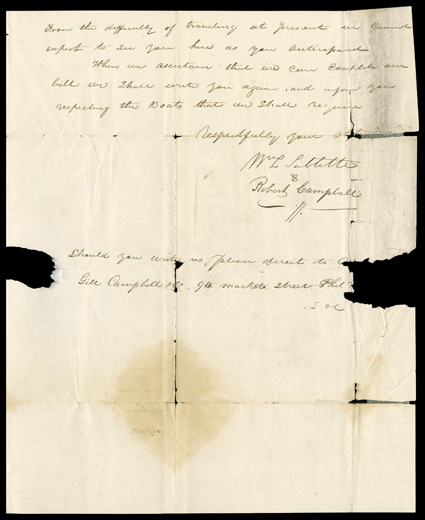 From the difficulty of traveling at present we cannot
expect to see you here as you anticipated
When we ascertain that we can complete our
bill we shall write you again, and inform you
respecting the Boats that we shall require
Respectfully your
Wm L Sublette
&
Robert Campbell
Should you write us, please direct to
Gill Campbell & Co. 94 market Street Phil
S & C